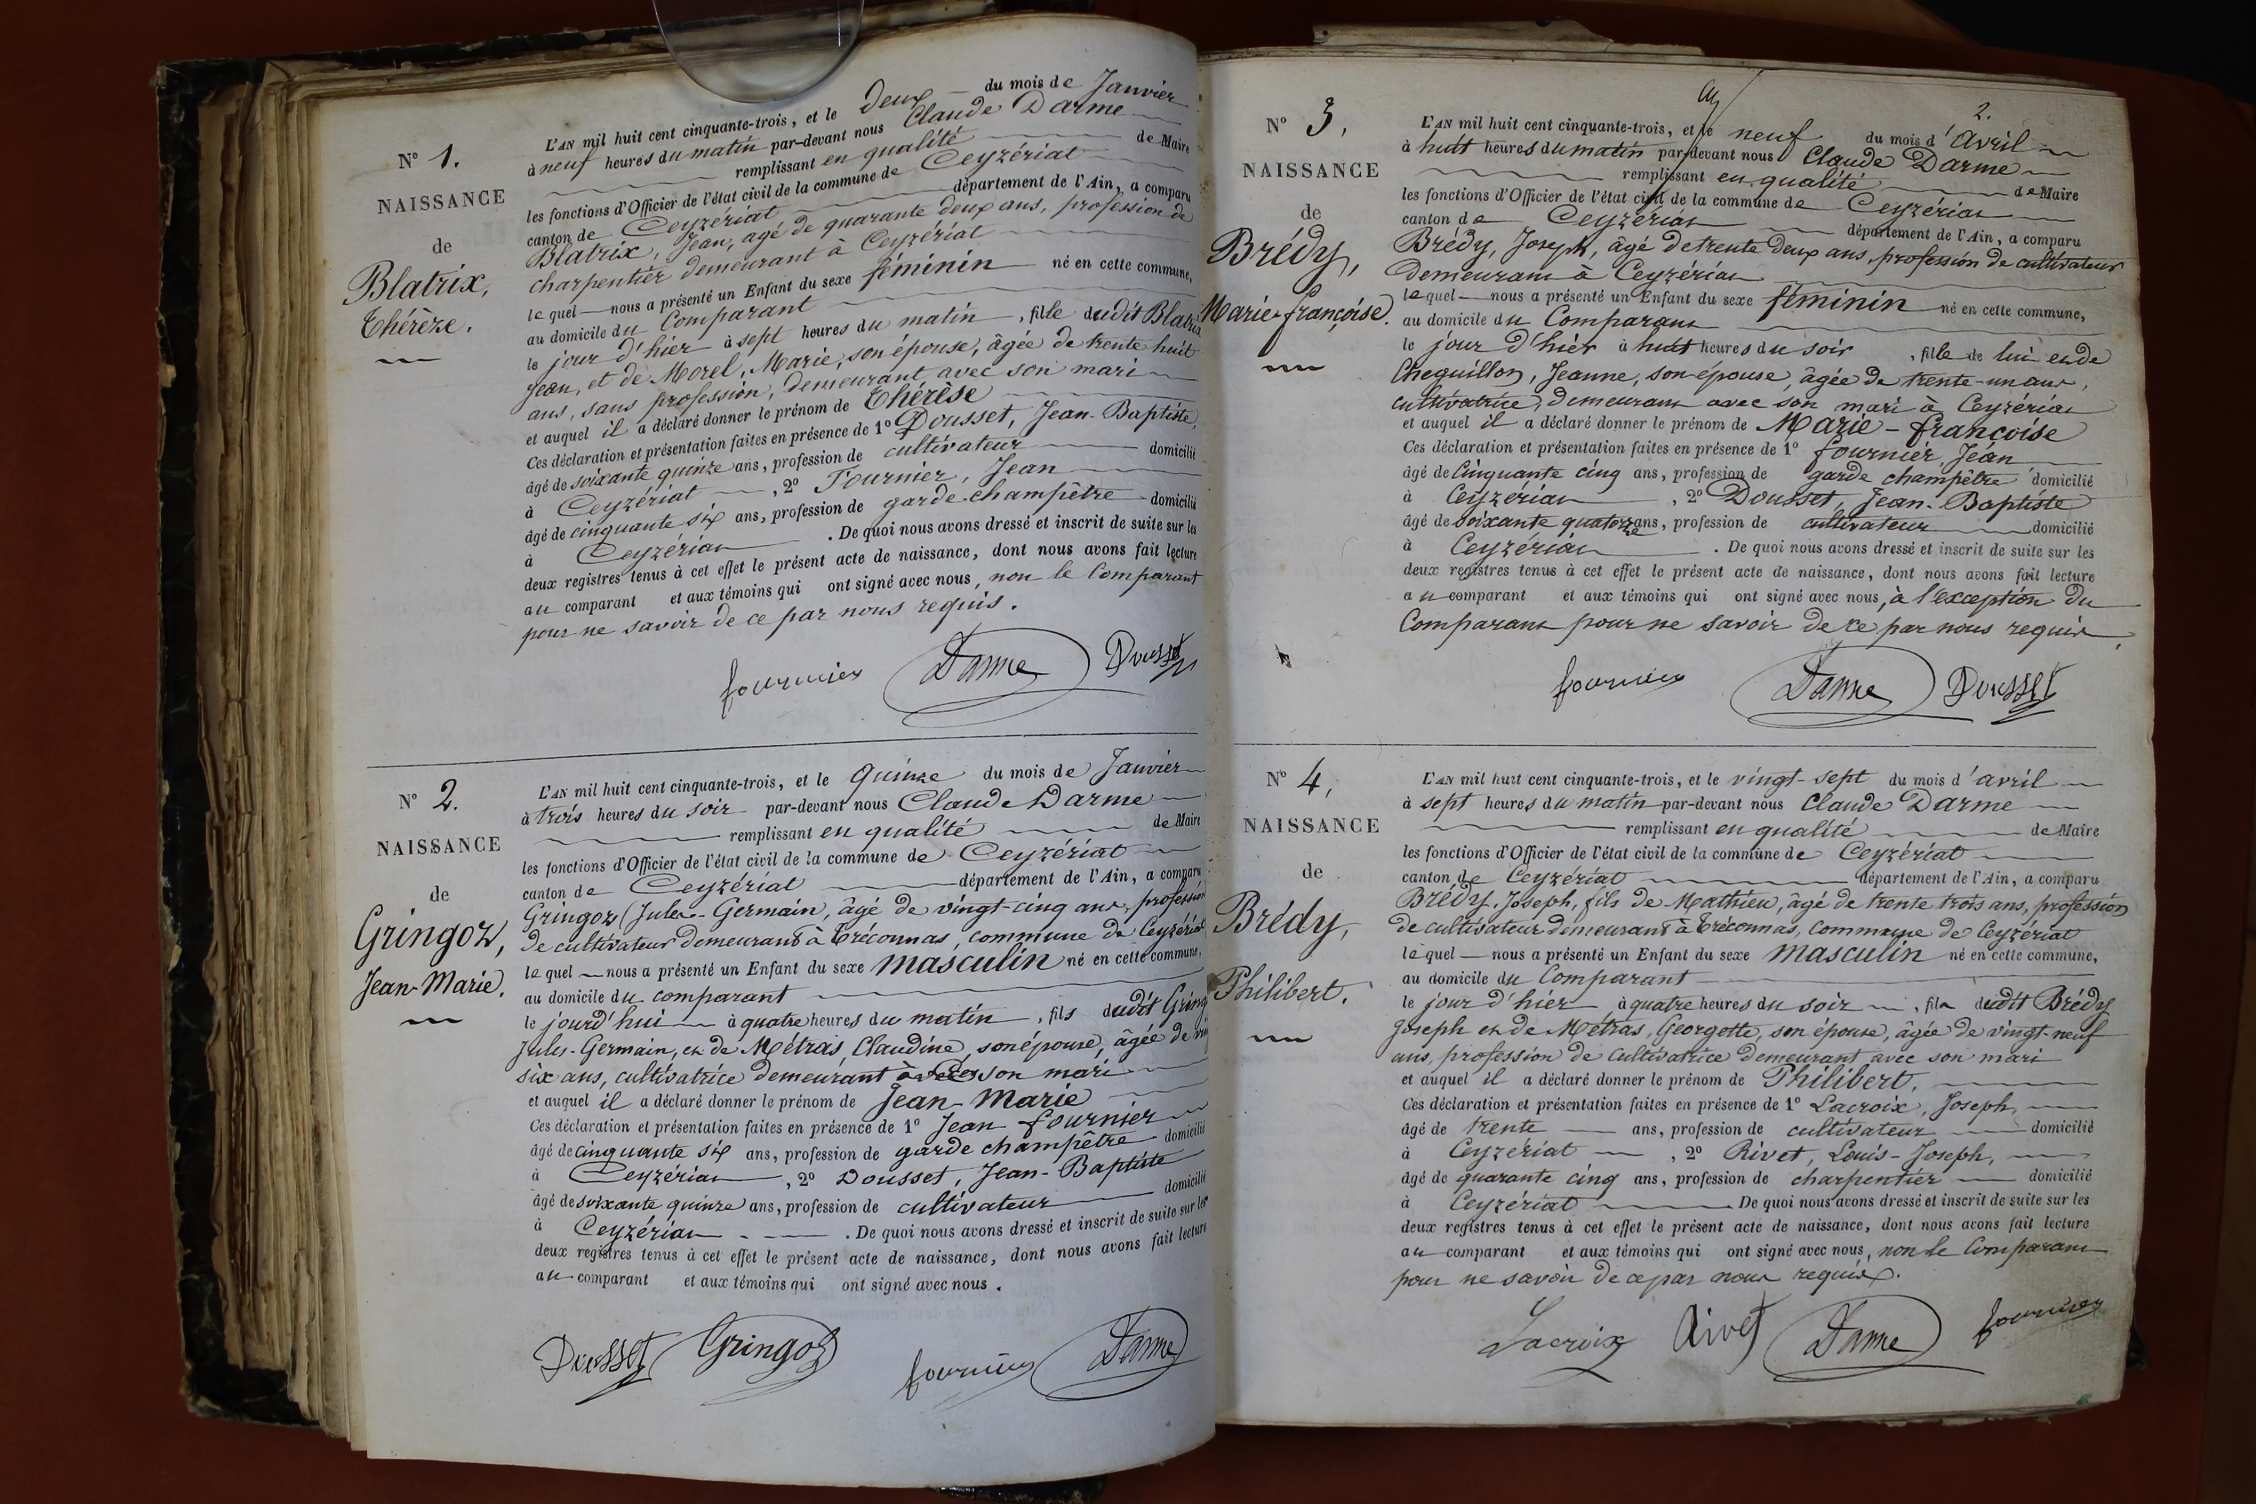 N° 1.
NAISSANCE
de
Blatrix,
Thérèze.
L'AN mil huit cent cinquante-trois, et le deux du mois de Janvier
à neuf heures du matin par-devant nous Claude Darme
remplissant en qualité de Maire
les fonctions d'Officier de l'état civil de la commune de Ceyzériat
canton de Ceyzériat département de l'Ain, a comparu
Blatrix, Jean, agé de quarante deux ans, profession de
charpentier demeurant à Ceyzériat
le quel nous a présenté un Enfant du sexe féminin né en cette commune,
au domicile du Comparant
le jour d'hier à sept heures du matin, fille dudit Blatrix
Jean, et de Morel, Marie, son épouse, âgée de trente huit
ans, sans profession, demeurant avec son mari
et auquel il a déclaré donner le prénom de Thérèse
Ces déclaration et présentation faites en présence de 1° Dousset, Jean-Baptiste,
âgé de soixante quinze ans, profession de cultivateur domicilié
à Ceyzériat, 2° Fournier, Jean
âgé de cinquante six ans, profession de garde-champêtre domicilié
à Ceyzériat. De quoi nous avons dressé et inscrit de suite sur les
deux registres tenus à cet effet le présent acte de naissance, dont nous avons fait lecture
au comparant et aux témoins qui ont signé avec nous, non le Comparant
pour ne savoir de ce par nous requis.
fournier Darme Dousset
N° 2.
NAISSANCE
de
Gringoz,
Jean-Marie.
L'AN mil huit cent cinquante-trois, et le quinze du mois de Janvier
à trois heures du soir par-devant nous Claude Darme
remplissant en qualité de Maire
les fonctions d'Officier de l'état civil de la commune de Ceyzériat
canton de Ceyzériat département de l'Ain, a comparu
Gringoz (Jules-Germain, âgé de vingt-cinq ans, profession
de cultivateur demeurant à Tréconnas, commune de Ceyzériat
le quel nous a présenté un Enfant du sexe masculin né en cette commune,
au domicile du comparant
le jourd'hui à quatre heures du matin, fils dudit Gringoz
Jules-Germain, et de Métras, Claudine, son épouse, âgée de vingt
six ans, cultivatrice demeurant avec son mari
et auquel il a déclaré donner le prénom de Jean-Marie
Ces déclaration et présentation faites en présence de 1° Jean fournier
âgé de cinquante six ans, profession de garde champêtre domicilié
à Ceyzériat, 2° Dousset, Jean-Baptiste
âgé de soixante quinze ans, profession de cultivateur domicilié
à Ceyzériat. De quoi nous avons dressé et inscrit de suite sur les
deux registres tenus à cet effet le présent acte de naissance, dont nous avons fait lecture
au comparant et aux témoins qui ont signé avec nous.
Dousset Gringoz fournier Darme
2.
N° 3,
NAISSANCE
de
Brédy,
Marie-françoise.
L'AN mil huit cent cinquante-trois, et le neuf du mois d'avril
à huit heures du matin par-devant nous Claude Darme
remplissant en qualité de Maire
les fonctions d'Officier de l'état civil de la commune de Ceyzériat
canton de Ceyzériat département de l'Ain, a comparu
Brédy, Joseph, âgé de trente deux ans, profession de cultivateur
demeurant à Ceyzériat
le quel nous a présenté un Enfant du sexe féminin né en cette commune,
au domicile du Comparant
le jour d'hier à huit heures du soir, fille de lui et de
Chequillon, Jeanne, son épouse, âgée de trente-un ans,
cultivatrice, demeurant avec son mari à Ceyzériat
et auquel il a déclaré donner le prénom de Marie-françoise
Ces déclaration et présentation faites en présence de 1° fournier, Jean
âgé de Cinquante cinq ans, profession de garde champêtre domicilié
à Ceyzériat, 2° Dousset, Jean-Baptiste
âgé de soixante quatorze ans, profession de cultivateur domicilié
à Ceyzériat. De quoi nous avons dressé et inscrit de suite sur les
deux registres tenus à cet effet le présent acte de naissance, dont nous avons fait lecture
au comparant et aux témoins qui ont signé avec nous, à l'exception du
Comparant pour ne savoir de ce par nous requis.
fournier Darme Dousset
N° 4,
NAISSANCE
de
Brédy,
Philibert.
L'AN mil huit cent cinquante-trois, et le vingt-sept du mois d'avril
à sept heures du matin par-devant nous Claude Darme
remplissant en qualité de Maire
les fonctions d'Officier de l'état civil de la commune de Ceyzériat
canton de Ceyzériat département de l'Ain, a comparu
Brédy, Joseph, fils de Mathieu, âgé de trente trois ans, profession
de cultivateur demeurant à Tréconnas, Commune de Ceyzériat
le quel nous a présenté un Enfant du sexe masculin né en cette commune,
au domicile du Comparant
le jour d'hier à quatre heures du soir, fils dudit Brédy
Joseph et de Métras, Georgette, son épouse, âgée de vingt-neuf
ans, profession de Cultivatrice demeurant avec son mari
et auquel il a déclaré donner le prénom de Philibert.
Ces déclaration et présentation faites en présence de 1° Lacroix, Joseph,
âgé de trente ans, profession de cultivateur domicilié
à Ceyzériat, 2° Rivet, Louis-Joseph,
âgé de quarante cinq ans, profession de charpentier domicilié
à Ceyzériat De quoi nous avons dressé et inscrit de suite sur les
deux registres tenus à cet effet le présent acte de naissance, dont nous avons fait lecture
au comparant et aux témoins qui ont signé avec nous, non le Comparant
pour ne savoir de ce par nous requis.
Lacroix Rivet Darme fournier